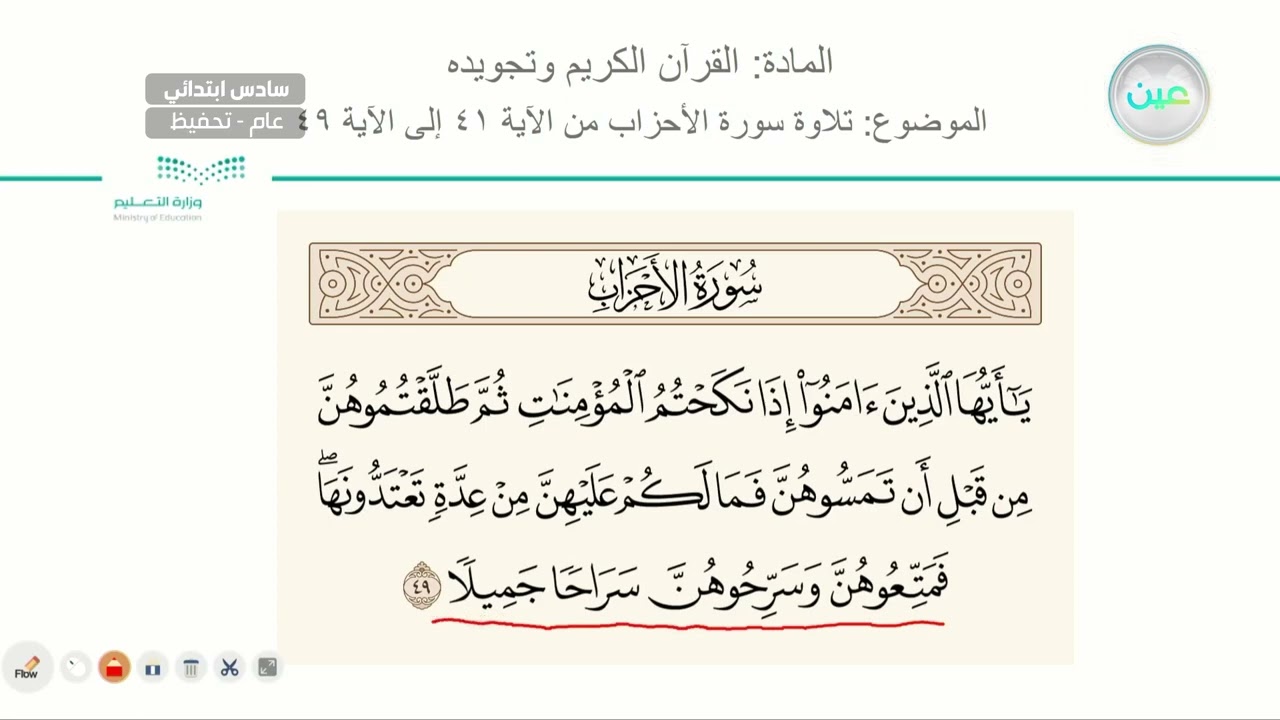 المادة: القرآن الكريم وتجويده
سادس ابتدائي
عين
الموضوع: تلاوة سورة الأحزاب من الآية ٤١ إلى الآية ٤٩
عام - تحفيظ
وزارة التعـــليم
Ministry of Education
سُورَةُ الأَحْزَابِ
يَٰٓأَيُّهَا ٱلَّذِينَ ءَامَنُوٓا۟ إِذَا نَكَحْتُمُ ٱلْمُؤْمِنَٰتِ ثُمَّ طَلَّقْتُمُوهُنَّ
مِن قَبْلِ أَن تَمَسُّوهُنَّ فَمَا لَكُمْ عَلَيْهِنَّ مِنْ عِدَّةٍ تَعْتَدُّونَهَا ۖ
فَمَتِّعُوهُنَّ وَسَرِّحُوهُنَّ سَرَاحًا جَمِيلًا ٤٩
Flow